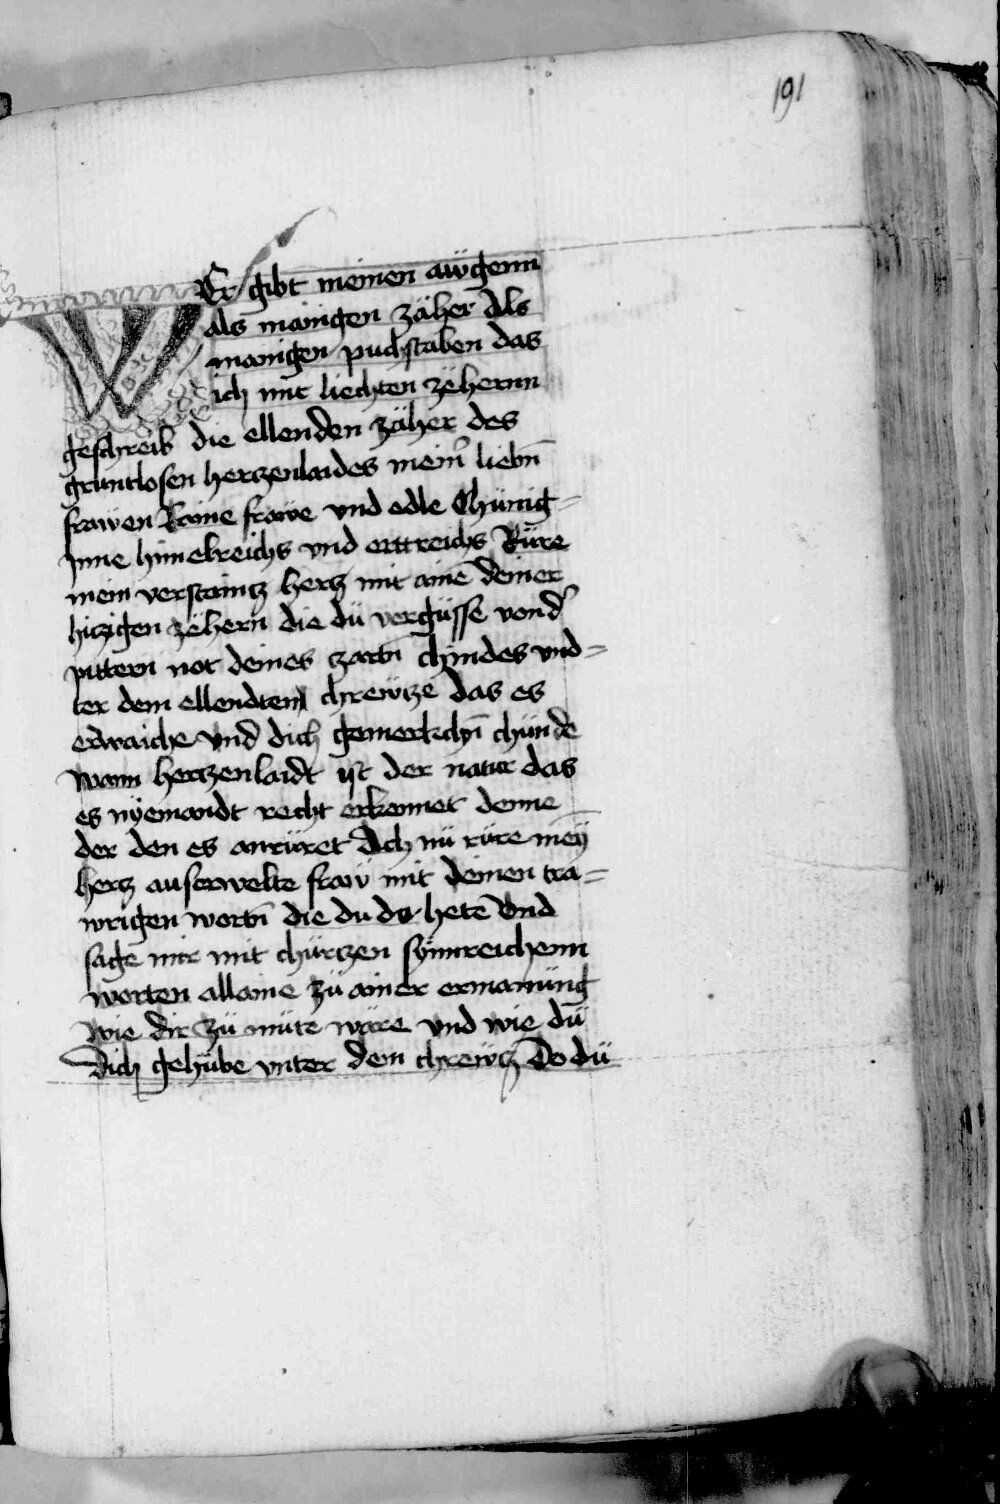 191
WEr gibt meinen awgenn
als manigen zäher Als
manigen puchstaben das
ich mit liechten zëhernn
geschreib die ellenden zäher des
gruntlosen herczenlaides mein̾ liebn̄
frawen Raine frawe vnd edle Chünig-
Inne himelreichs vnd erttreichs Rüre
mein verstaintz hertz mit ainē deiner
hiczigen zëhern die dü vergüsse von d̾
pittern not deines zartn̄ chindes vnd-
ter dem ellendten chrewtze das es
erwaiche vnd dich gemerkchn̄ chünde
wann hertzenlaidt ist der natur das
es nÿemandt recht erkennet denne
der den es anrüret Ach nü rüre meÿ
hertz auserwelte fraw mit deinen tra-
wrigen wortn̄ die du do hetē Vnd
sage mir mit chürtzen synnreichenn
worten allaine zü ainer ermanüng
wie dir zü müte wäre vnd wie dü
dich gehübe vnter dem chrewtz Do dü